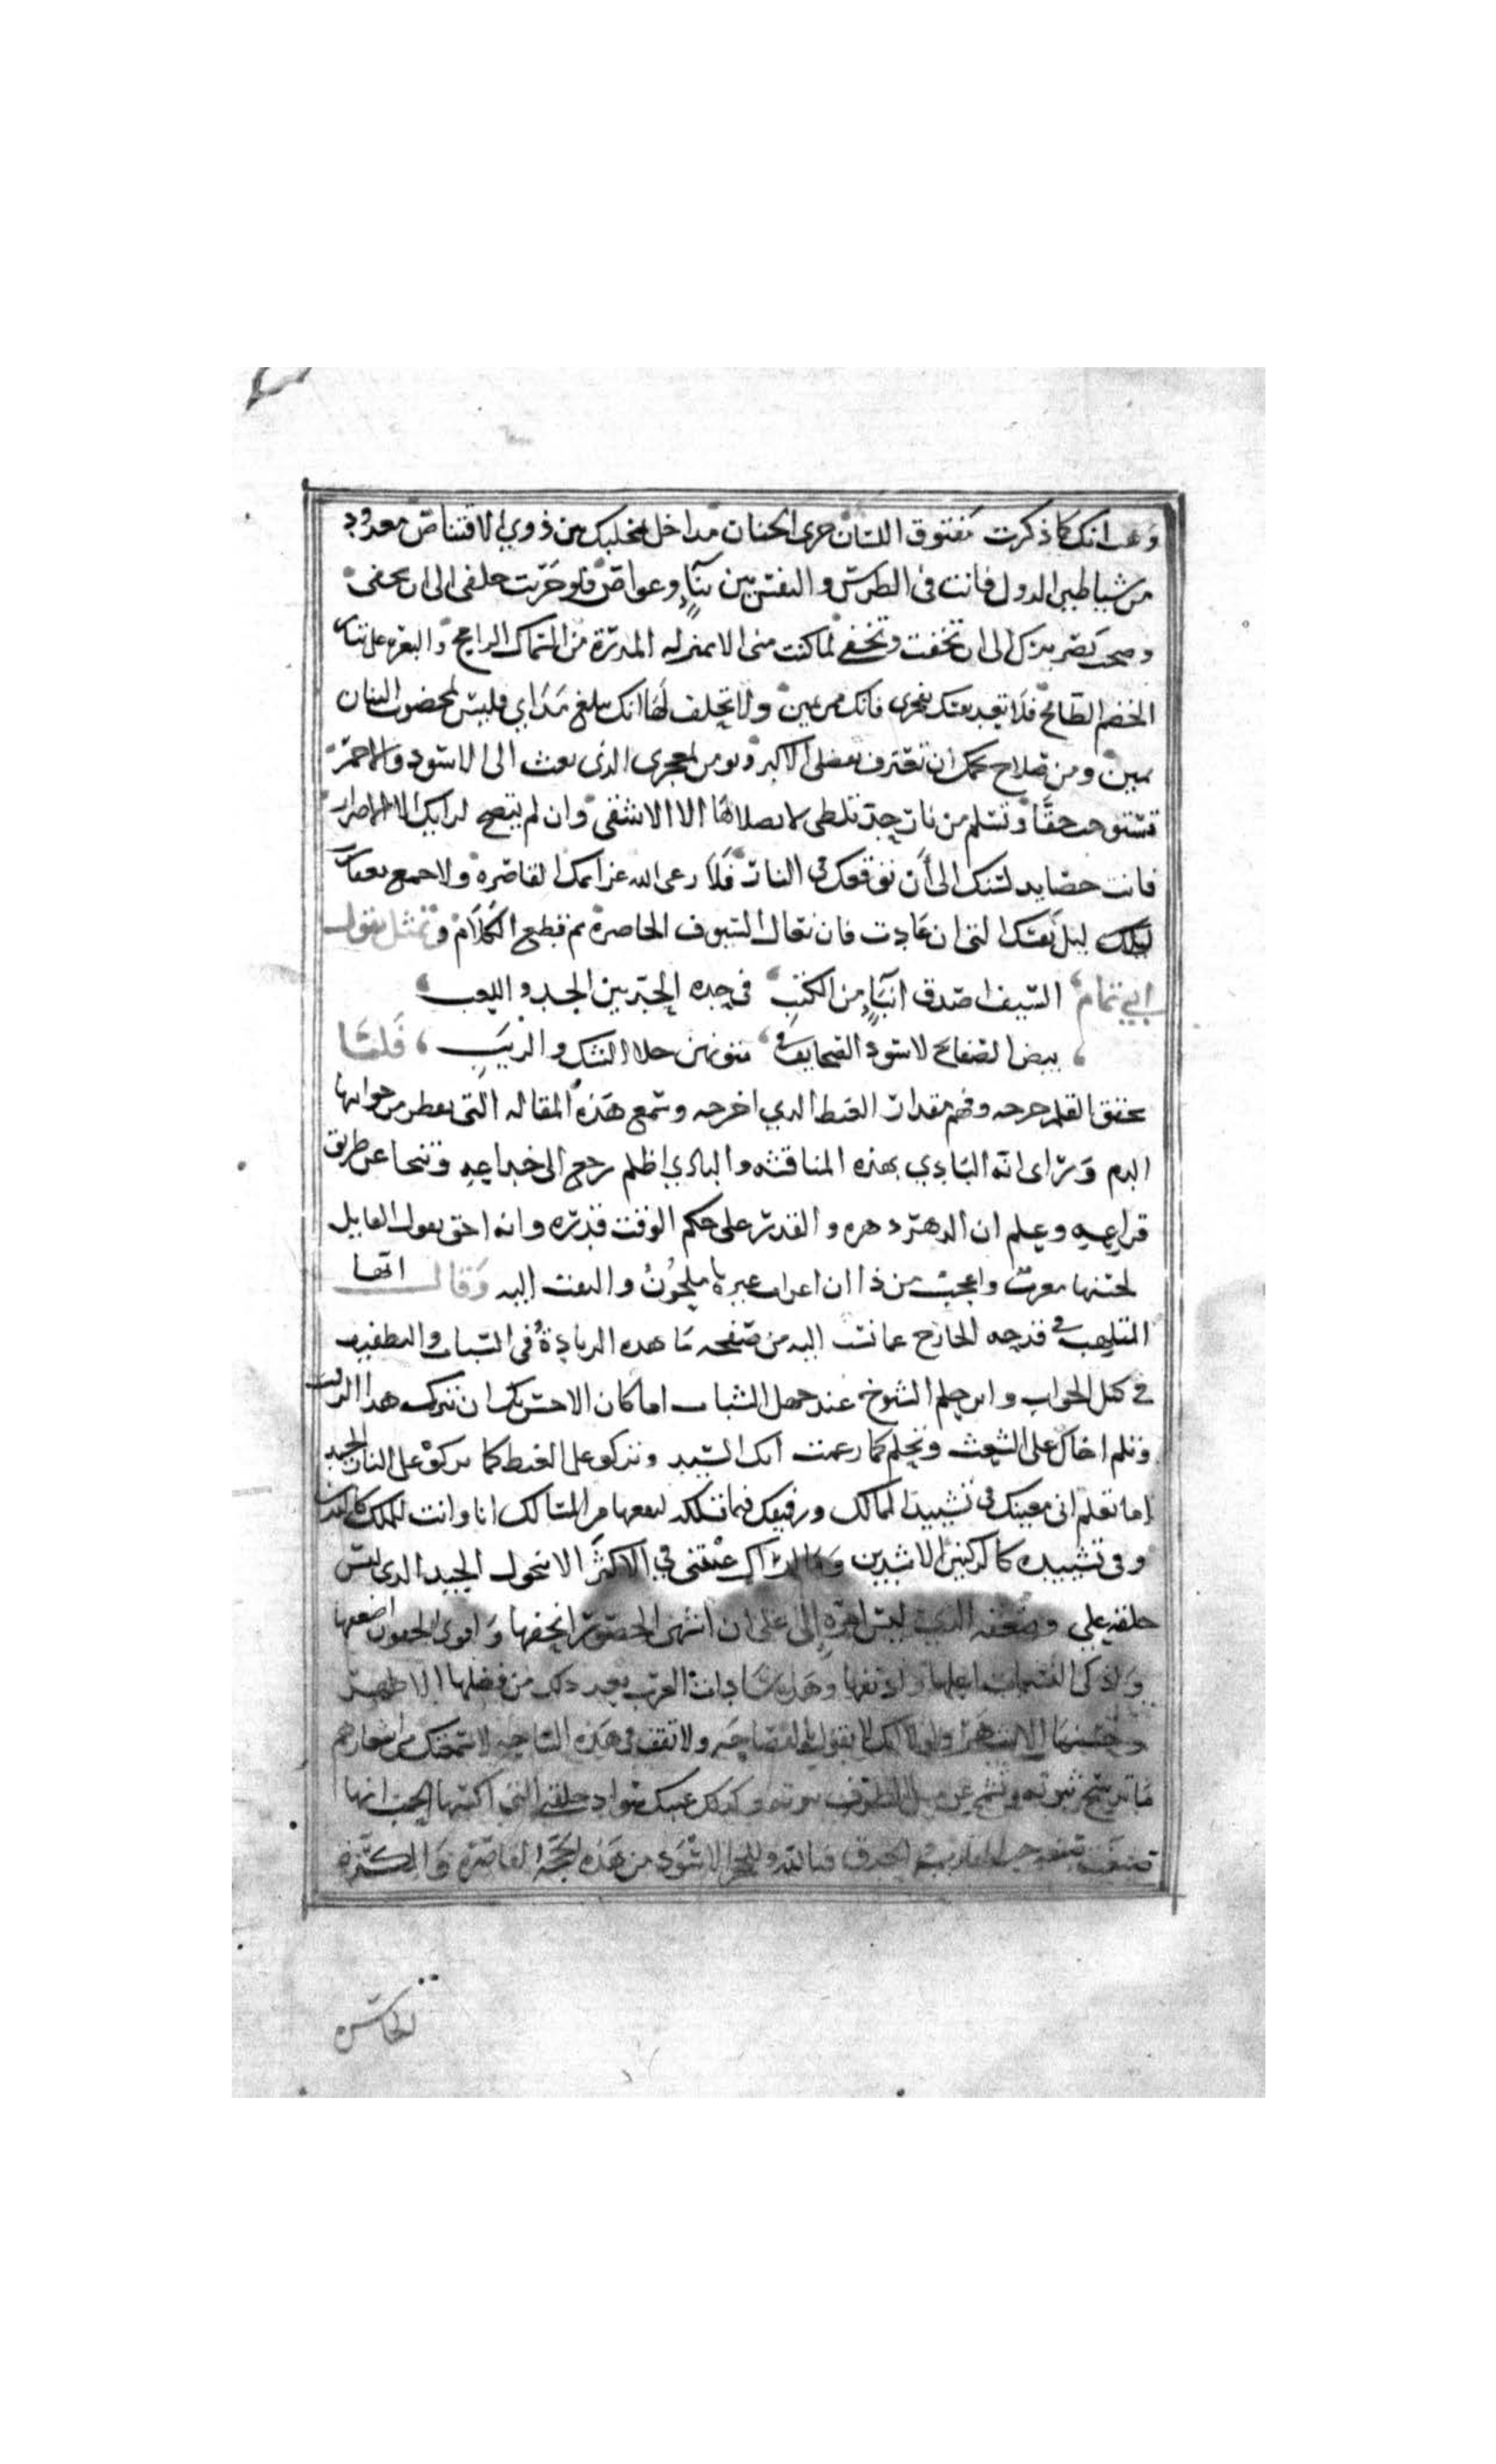 وهب انك كما ذكرت مفتوق اللسان جرى الجنان مداخل بمخلبك بين ذوي الاقتناص معدود
من شياطين الدول فانت في الطرس والنقس بين بناء وغواص فلو جريت خلفي الى ان تحفى
وصحت بصريرك الى ان تخفت وتخفى لما كنت منى الا بمنزلة المدرة من السماك الرامح والبعرة على تيار
الخضم الطافح فلا تعد نفسك بمعجزى فانك ممن يمين ولا تحلف لها انك تبلغ مداي فليس لمخضوب البنان
يمين ومن صلاح نجمك ان تعترف بفضلى الاكبر وتومن بمعجزى الذى بعث الى الاسود والاحمر
تستوجب حقا وتسلم من نار حر تلظى لا يصلاها الا الاشقى وان لم يتضح لرايك الا الاصرار
فانت حصايد لسنك الى أن توقعك فى النار فلا رعى الله عزائمك القاصرة ولا جمع
ليل نقسك التى ان عادت فان نعال السيوف الحاضرة ثم قطع الكلام وتمثل بقول
ابي تمام السيف اصدق انباء من الكتب في حده الحد بين الجد واللعب
بيض الصفائح لا سود الصحايف في متونهن جلا الشك والريب فلما
تحقق القلم حرجه وفهم مقدار الغيظ الذي اخرجه وسمع هذه المقالة التى يقطر من جوانبها
الدم وراى انه البادي بهذه المناقشه والبادي اظلم رجع الى خداعه وتنحا عن طريق
قراعه وعلم ان الدهر دهره والقدر على حكم الوقت قدره وانه احق بقول القايل
لحنها معرب واعجب من ذا ان اعراب غيرها ملحون والتفت اليه وقال ايها
المتلهب في قدحه الخارج عما نسب اليه من صفحه ما هذه الزيادة فى السباب والتطفيف
في كيل الجواب واين حلم الشيوخ عند جهل الشباب اما كان الاحسن بك ان تترك هذا الرفث
وتلم اخاك على الشعث وتحلم كما زعمت انك السيد وتزكو على الغيظ كما يزكو على النار الجيد
اما تعلم انى معينك فى تشييد الممالك ورفيقك فيما تسلكه لنفعها من المسالك انا وانت للملك كاليدين
وفى تشييده كالركنين الاشدين وما اراك عبتنى في الاكثر الا بنحول الجسد الذى ليس
خلقه علي وضعفه الذى ليس امره إلى على ان اشهى الخصور انحفها واقوى الجفون اضعفها
وازكى النسمات اعلها والطفها وهل سادات العرب يعد ذلك من فضلها الا
ولولا انك لا تقول بالفصاحه ولا تقف في هذه الساحه لاسمعتك من اشعارهم
وكذلك عيبك سواد خلقتى التى اكسبها الحب انها
فيالله وللحجر الاسود من هذه الحجة القاصرة والكرة
الخاسره